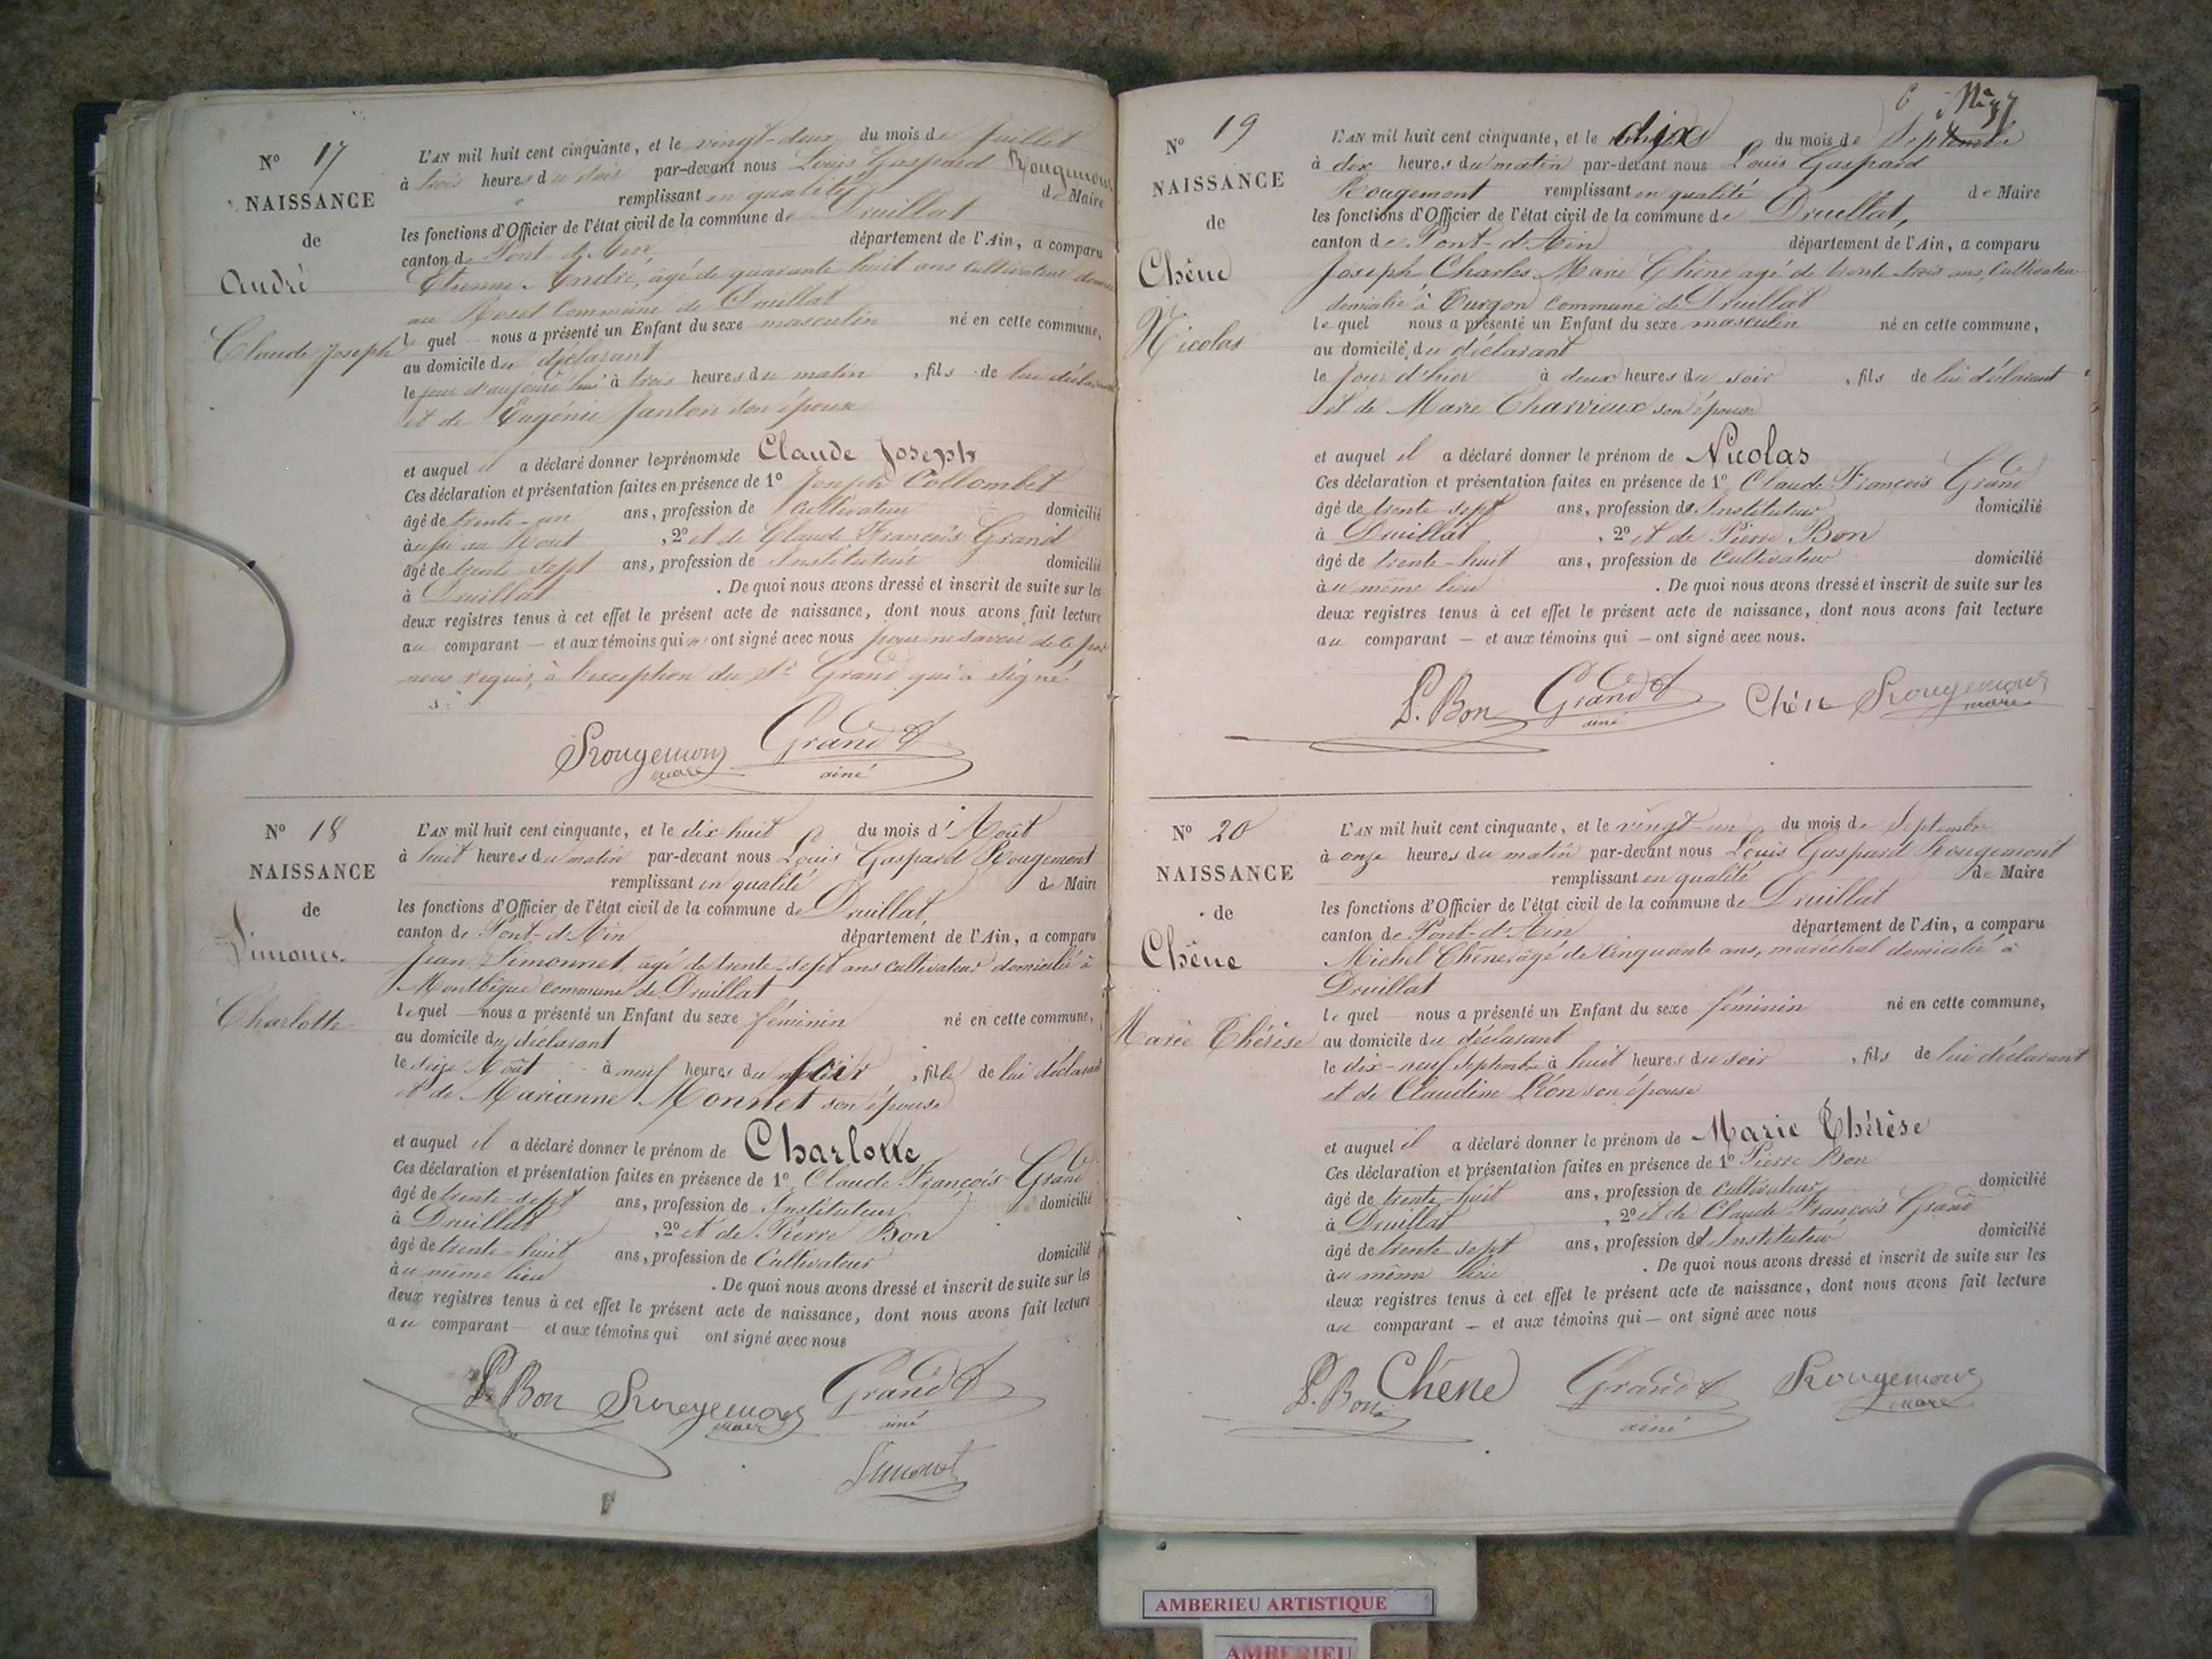 Nº 17
NAISSANCE
de
André
Claude Joseph
L'AN mil huit cent cinquante, et le vingt-deux du mois de Juillet
à trois heures du soir par-devant nous Louis Gaspard Rougemont
remplissant en qualité de Maire
les fonctions d'Officier de l'état civil de la commune de Druillat
canton de Pont-d'Ain département de l'Ain, a comparu
Etienne André, âgé de quarante huit ans cultivateur
au Mollet commune de Druillat
lequel nous a présenté un Enfant du sexe masculin né en cette commune,
au domicile du déclarant
le jour d'aujourd'hui à trois heures du matin, fils de lui déclarant
et de Eugénie Janton son épouse
et auquel il a déclaré donner les prénoms de Claude Joseph
Ces déclaration et présentation faites en présence de 1º Joseph Collombet
âgé de trente-un ans, profession de Cultivateur domicilié
aussi au , 2º et de Claude François Grand
âgé de trente-sept ans, profession de Instituteur domicilié
à Druillat . De quoi nous avons dressé et inscrit de suite sur les
deux registres tenus à cet effet le présent acte de naissance, dont nous avons fait lecture
au comparant — et aux témoins qui n'ont signé avec nous pour ne savoir de ce par
nous requis, à l'exception du Sr Grand qui a signé
Rougemont
maire
Grand
ainé
Nº 18
NAISSANCE
de
Simonet
Charlotte
L'AN mil huit cent cinquante, et le dix-huit du mois d'Août
à huit heures du matin par-devant nous Louis Gaspard Rougemont
remplissant en qualité de Maire
les fonctions d'Officier de l'état civil de la commune de Druillat,
canton de Pont-d'Ain département de l'Ain, a comparu
Jean Simonnet, âgé de trente-sept ans cultivateur domicilié à
Montbègue commune de Druillat
lequel — nous a présenté un Enfant du sexe féminin né en cette commune,
au domicile du déclarant
le seize Août à neuf heures du soir, fille de lui déclarant
et de Marianne Monnet son épouse
et auquel il a déclaré donner le prénom de Charlotte
Ces déclaration et présentation faites en présence de 1º Claude François Grand
âgé de trente-sept ans, profession de Instituteur domicilié
à Druillat , 2º et de Pierre Bon
âgé de trente-huit ans, profession de Cultivateur domicilié
au même lieu . De quoi nous avons dressé et inscrit de suite sur les
deux registres tenus à cet effet le présent acte de naissance, dont nous avons fait lecture
au comparant — et aux témoins qui ont signé avec nous
P. Bon Rougemont
maire
Grand
ainé
Simonet
Nº 19
NAISSANCE
de
Chêne
Nicolas
L'AN mil huit cent cinquante, et le dix du mois de Septembre
à dix heures du matin par-devant nous Louis Gaspard
Rougemont remplissant en qualité de Maire
les fonctions d'Officier de l'état civil de la commune de Druillat,
canton de Pont-d'Ain département de l'Ain, a comparu
Joseph Charles Marie Chêne agé de trente-trois ans, Cultivateur
domicilié à Turgon commune de Druillat
lequel nous a présenté un Enfant du sexe masculin né en cette commune,
au domicile du déclarant
le jour d'hier à deux heures du soir, fils de lui déclarant
et de Marie Charvieux son épouse
et auquel il a déclaré donner le prénom de Nicolas
Ces déclaration et présentation faites en présence de 1º Claude François Grand
âgé de trente-sept ans, profession d'Instituteur domicilié
à Druillat , 2º et de Pierre Bon
âgé de trente-huit ans, profession de Cultivateur domicilié
au même lieu . De quoi nous avons dressé et inscrit de suite sur les
deux registres tenus à cet effet le présent acte de naissance, dont nous avons fait lecture
au comparant — et aux témoins qui — ont signé avec nous.
P. Bon Grand
ainé
Chêne Rougemont
maire
Nº 20
NAISSANCE
de
Chêne
Marie Thérèse
L'AN mil huit cent cinquante, et le vingt-un du mois de Septembre
à onze heures du matin par-devant nous Louis Gaspard Rougemont
remplissant en qualité de Maire
les fonctions d'Officier de l'état civil de la commune de Druillat
canton de Pont-d'Ain département de l'Ain, a comparu
Michel Chêne, âgé de cinquante ans, maréchal domicilié à
Druillat
lequel nous a présenté un Enfant du sexe féminin né en cette commune,
au domicile du déclarant
le dix-neuf Septembre à huit heures du soir, fils de lui déclarant
et de Claudine Léon son épouse
et auquel il a déclaré donner le prénom de Marie Thérèse
Ces déclaration et présentation faites en présence de 1º Pierre Bon
âgé de trente-huit ans, profession de cultivateur domicilié
à Druillat , 2º et de Claude François Grand
âgé de trente-sept ans, profession d'Instituteur domicilié
au même lieu . De quoi nous avons dressé et inscrit de suite sur les
deux registres tenus à cet effet le présent acte de naissance, dont nous avons fait lecture
au comparant — et aux témoins qui — ont signé avec nous
P. Bon Chêne Grand
ainé
Rougemont
maire
AMBERIEU ARTISTIQUE
AMBERIEU